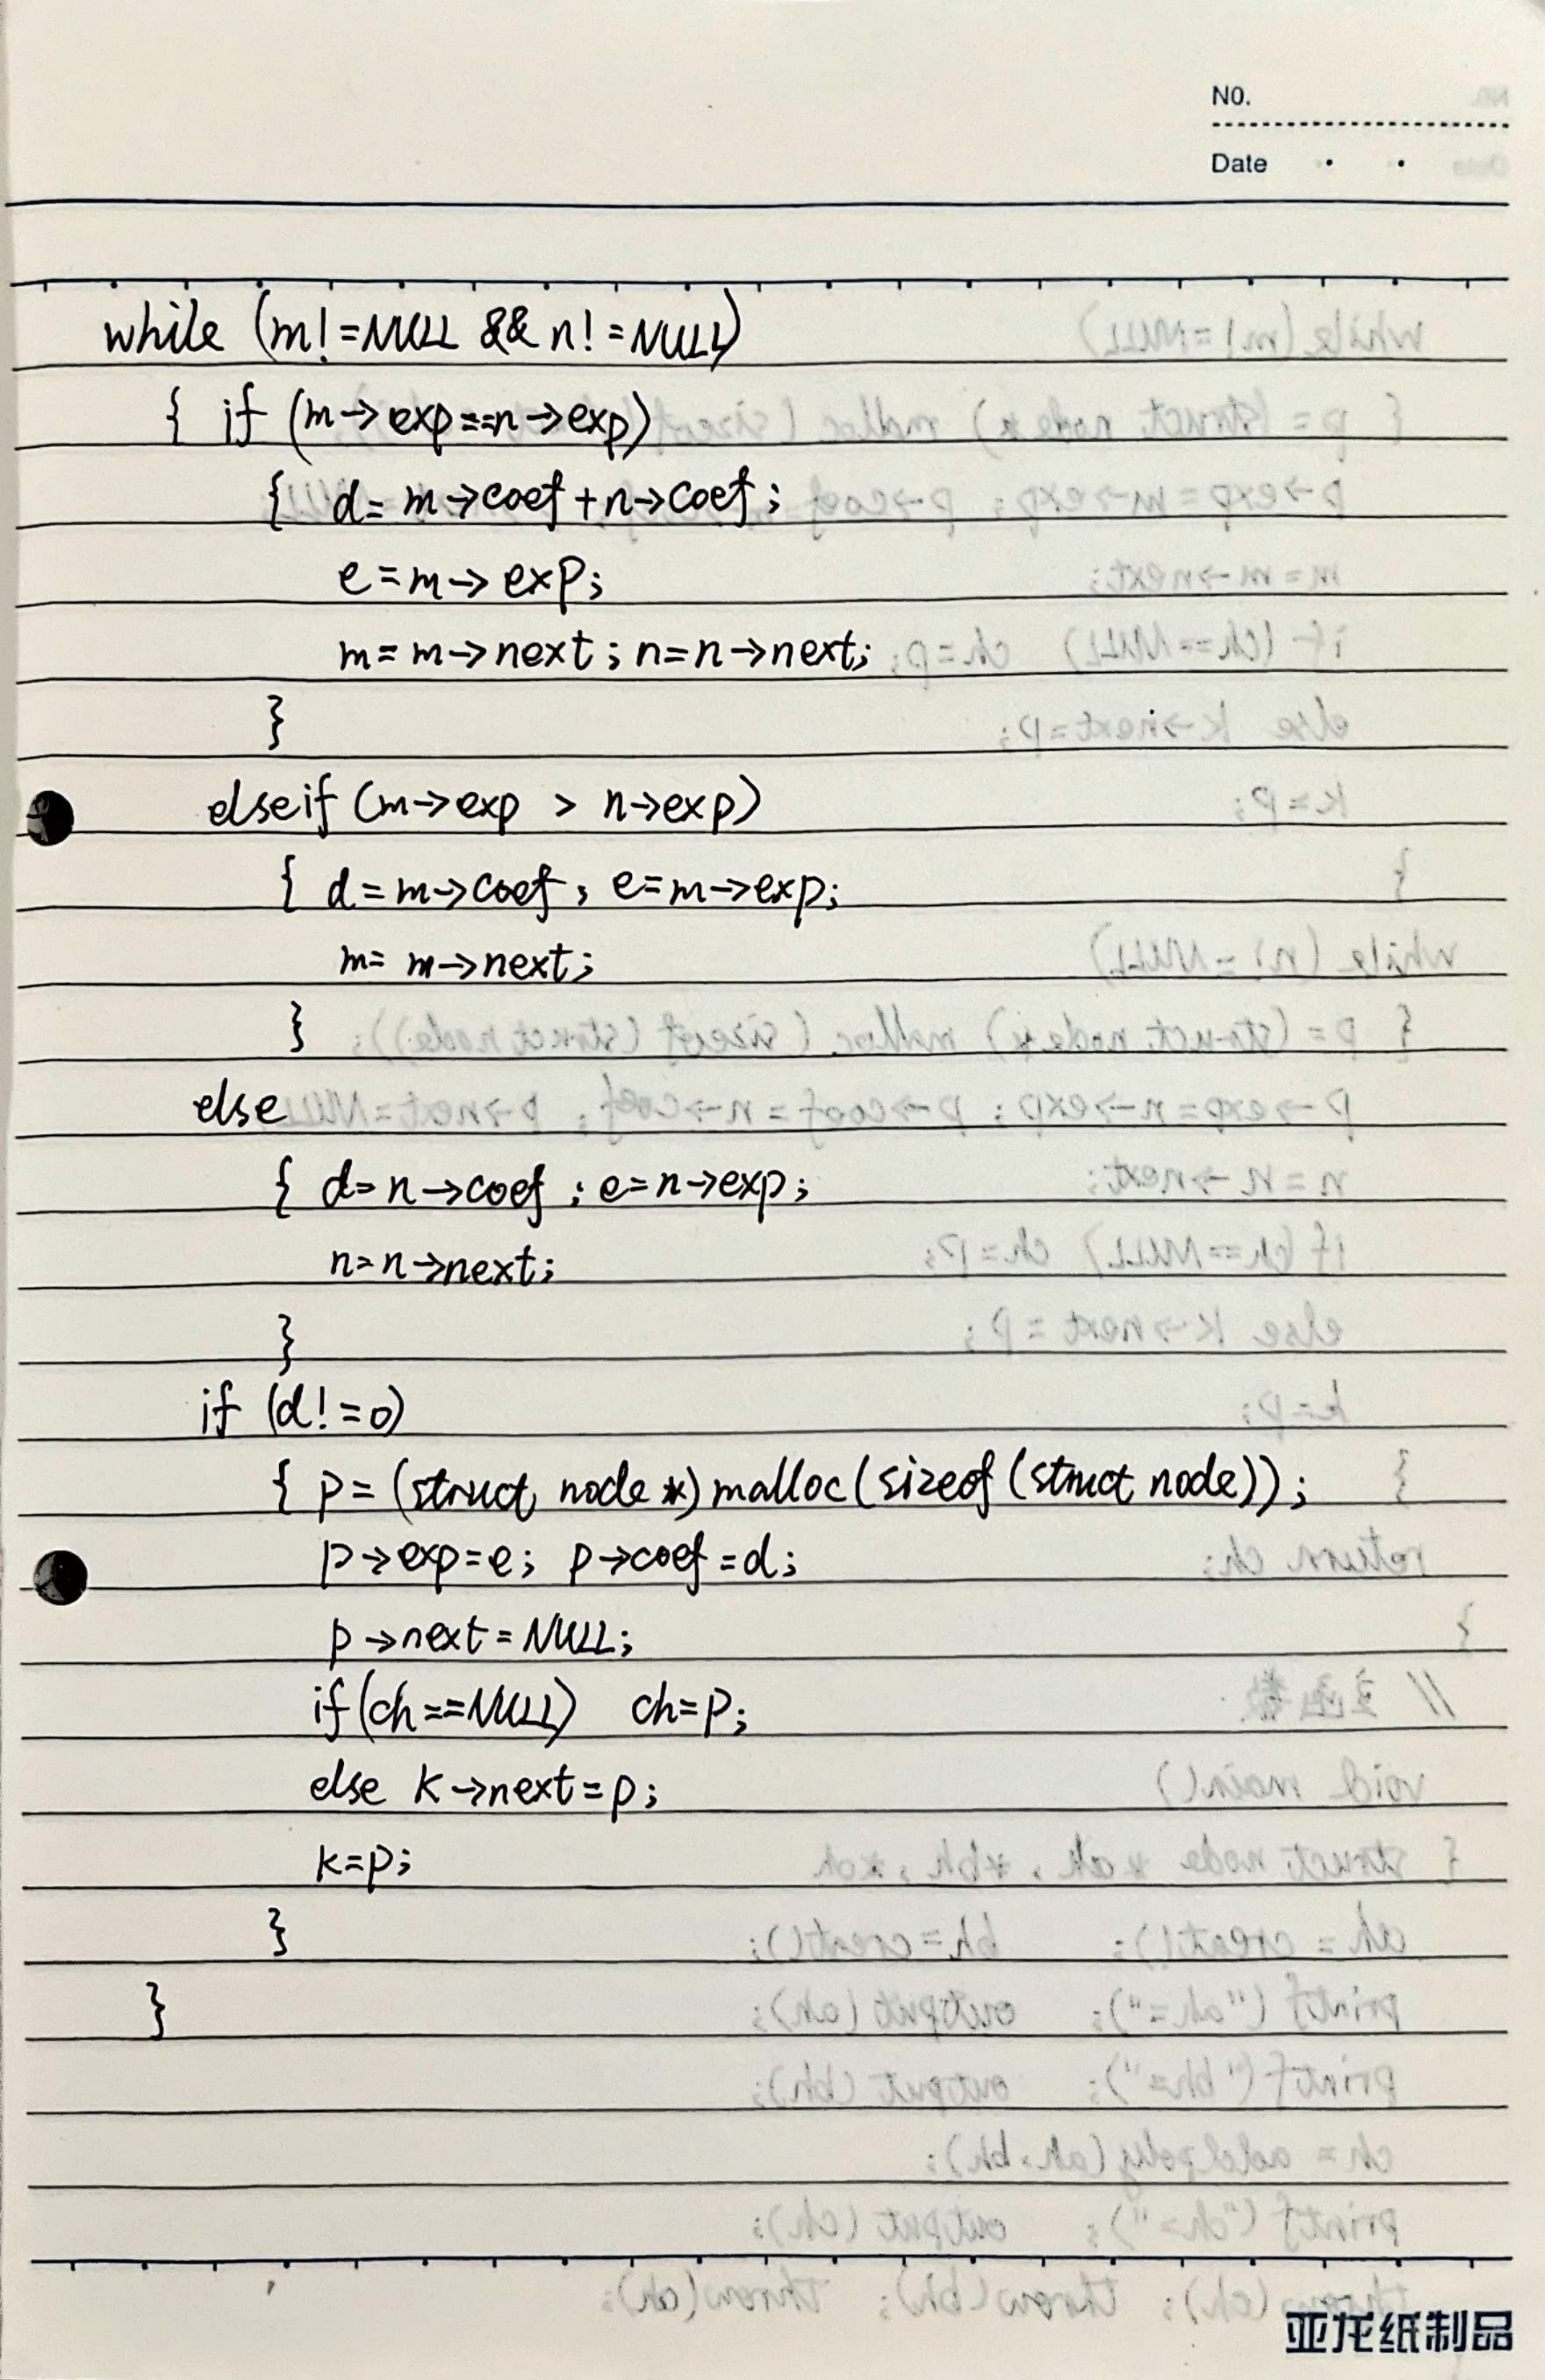 NO.
Date
while (m!=NULL && n!=NULL)
{ if (m->exp==n->exp)
{ d=m->coef+n->coef;
e=m->exp;
m=m->next;n=n->next;
}
elseif (m->exp > n->exp)
{ d=m->coef; e=m->exp;
m=m->next;
}
else
{ d=n->coef;e=n->exp;
n=n->next;
}
if (d!=0)
{ p=(struct node *)malloc(sizeof(struct node));
p->exp=e; p->coef=d;
p->next=NULL;
if(ch==NULL) ch=p;
else k->next=p;
k=p;
}
}
亚龙纸制品